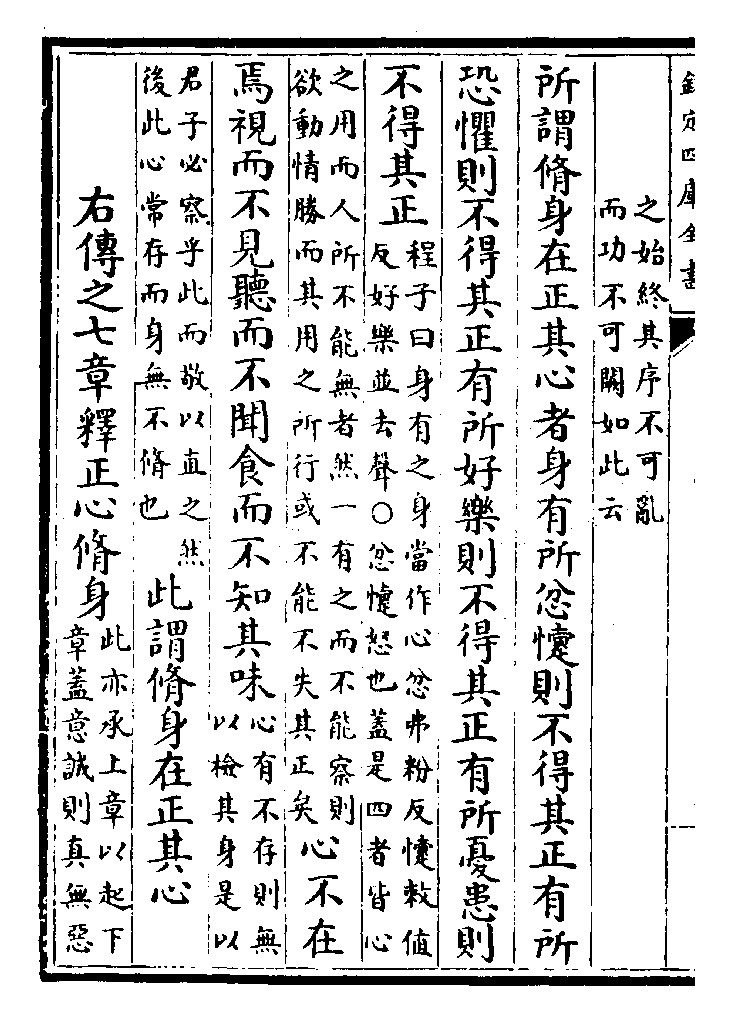 欽定四庫全書
之始終其序不可亂
而功不可闕如此云
所謂脩身在正其心者身有所忿懥則不得其正有所
恐懼則不得其正有所好樂則不得其正有所憂患則
不得其正
程子曰身有之身當作心忿弗粉反懥敕值
反好樂並去聲○忿懥怒也蓋是四者皆心
之用而人所不能無者然一有之而不能察則
欲動情勝而其用之所行或不能不失其正矣
心不在
焉視而不見聽而不聞食而不知其味
心有不存則無
以檢其身是以
君子必察乎此而敬以直之然
後此心常存而身無不脩也
此謂脩身在正其心
右傳之七章釋正心脩身
此亦承上章以起下
章蓋意誠則真無惡